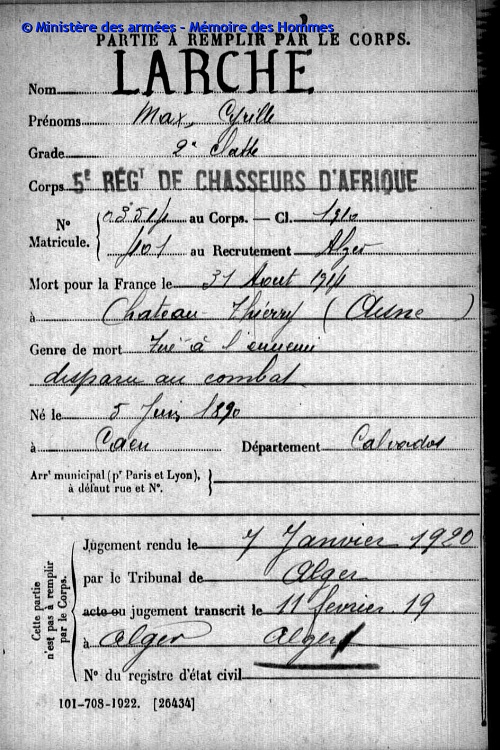 © Ministère des armées - Mémoire des Hommes
PARTIE À REMPLIR PAR LE CORPS.
Nom LARCHE
Prénoms Max, Cyrille
Grade 2e Classe
Corps 5E RÉGT DE CHASSEURS D'AFRIQUE
N° Matricule. au Corps. — Cl. 1910
au Recrutement Alger
Mort pour la France le 31 Aout 1914
à Chateau-Thierry (Aisne)
Genre de mort Tué à l'ennemi
disparu au combat
Né le 5 Juin 1890
à Caen Département Calvados
Arrt municipal (pr Paris et Lyon),
à défaut rue et N°.
Cette partie
n'est pas à remplir
par le Corps.
Jugement rendu le 7 Janvier 1920
par le Tribunal de Alger
acte ou jugement transcrit le 11 fevrier 19
à Alger Alger
N° du registre d'état civil
101-708-1922. [26434]